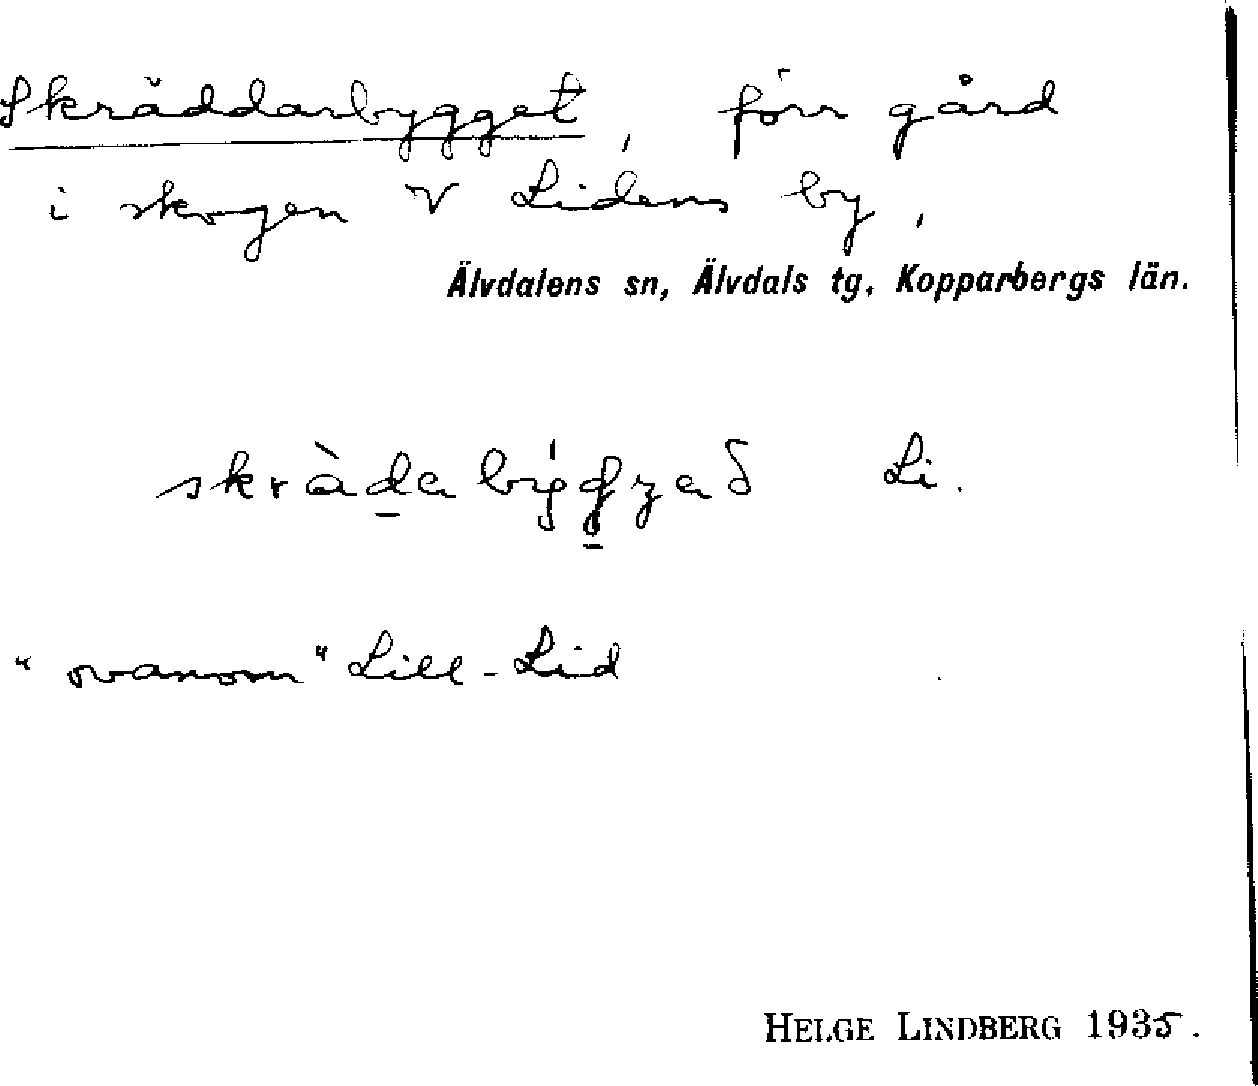 Skräddarbygget, förr gård
i skogen V Lidens by,
Älvdalens sn, Älvdals tg, Kopparbergs län.
Li.
"ovanom" Lill-Lid
HELGE LINDBERG 1935.